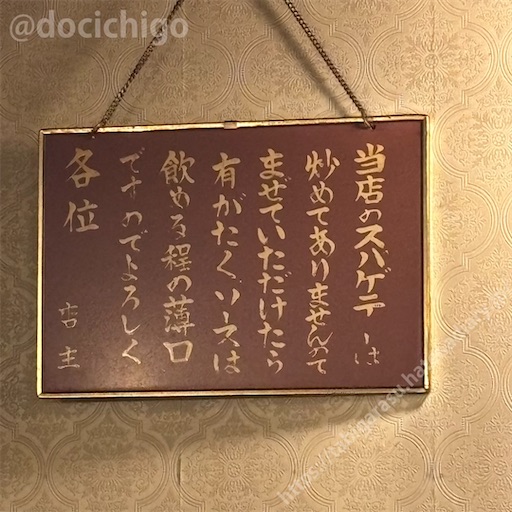 @docichigo
当店のスパゲテーは
炒めてありませんので
まぜていただけたら
有がたくソースは
飲める程の薄口
ですのでよろしく
各位
店主